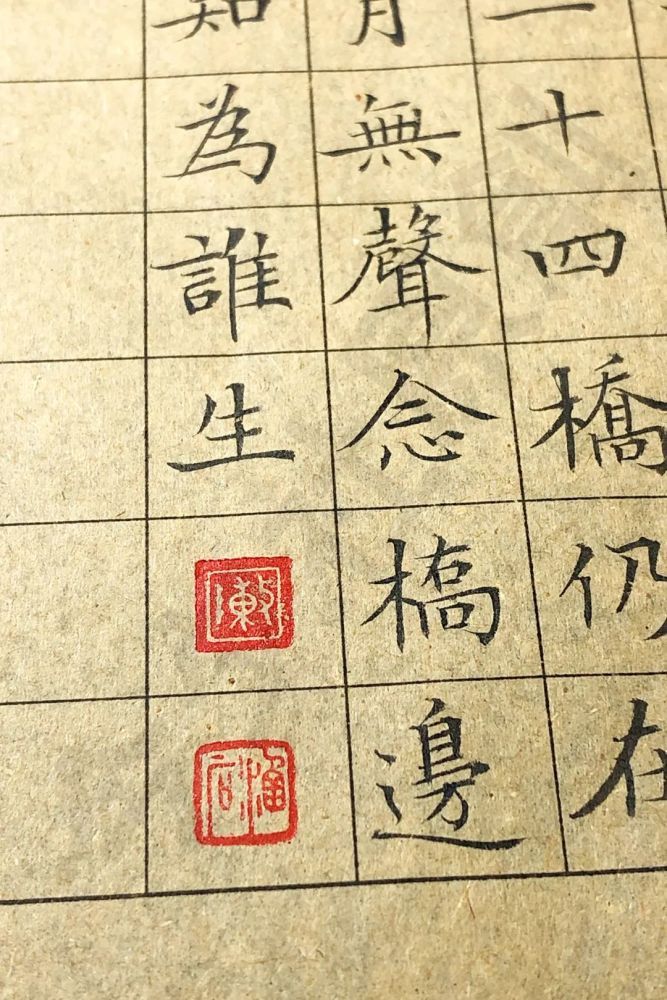 二十四橋仍在
月無聲念橋邊
知為誰生